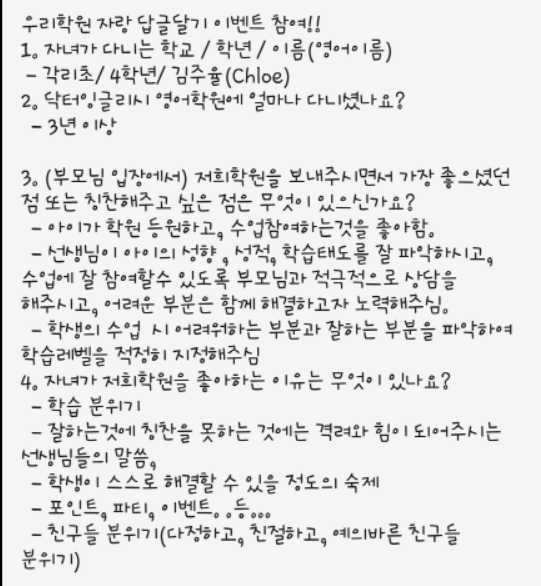 우리학원 자랑 답글달기 이벤트 참여!!
1. 자녀가 다니는 학교 / 학년 / 이름(영어이름)
- 각리초/ 4학년/ 김주율(Chloe)
2. 닥터잉글리시 영어학원에 얼마나 다니셨나요?
- 3년 이상
3. (부모님 입장에서) 저희학원을 보내주시면서 가장 좋으셨던
점 또는 칭찬해주고 싶은 점은 무엇이 있으신가요?
- 아이가 학원 등원하고, 수업참여하는것을 좋아함.
- 선생님이 아이의 성향, 성적, 학습태도를 잘 파악하시고,
수업에 잘 참여할수 있도록 부모님과 적극적으로 상담을
해주시고, 어려운 부분은 함께 해결하고자 노력해주심.
- 학생의 수업 시 어려워하는 부분과 잘하는 부분을 파악하여
학습레벨을 적정히 지정해주심
4. 자녀가 저희학원을 좋아하는 이유는 무엇이 있나요?
- 학습 분위기
- 잘하는것에 칭찬을 못하는 것에는 격려와 힘이 되어주시는
선생님들의 말씀,
- 학생이 스스로 해결할 수 있을 정도의 숙제
- 포인트, 파티, 이벤트. .등...
- 친구들 분위기(다정하고, 친절하고, 예의바른 친구들
분위기)